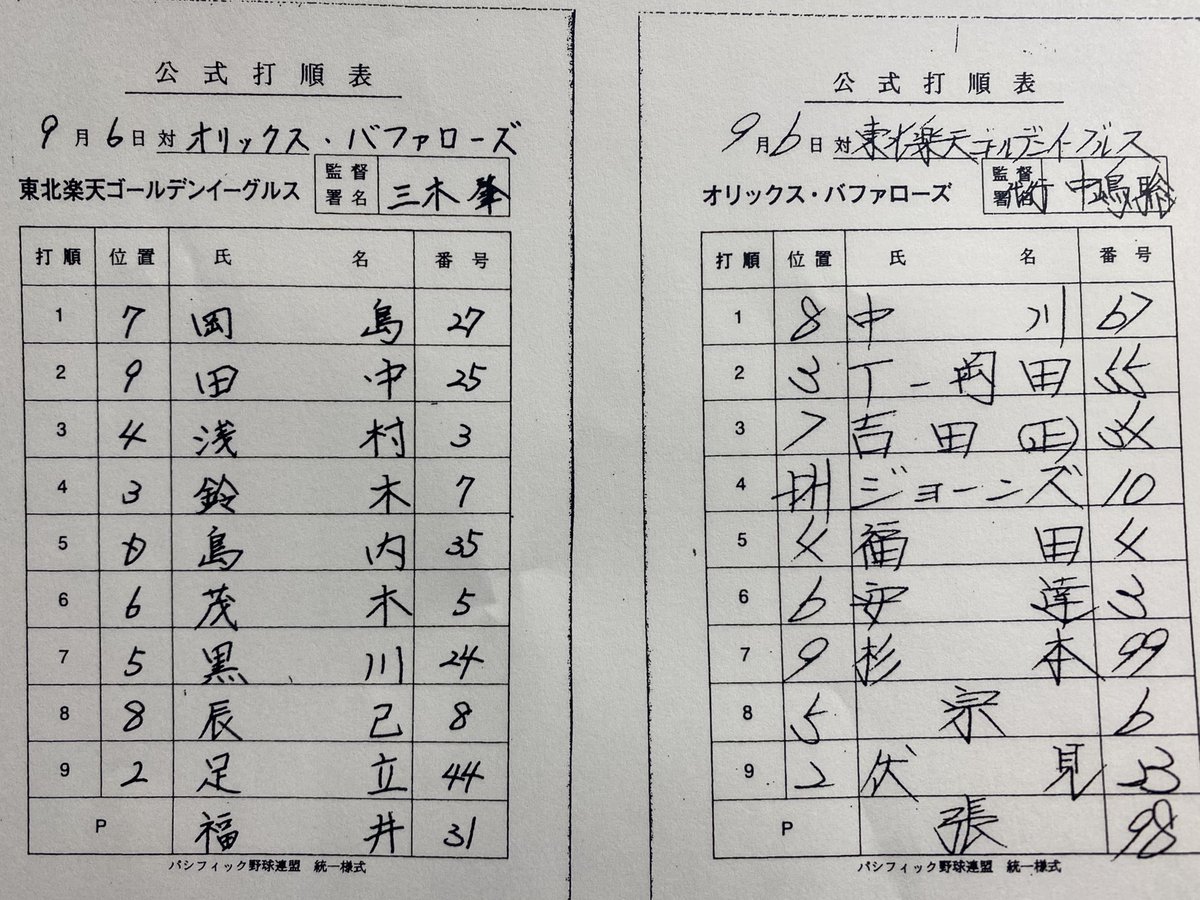 公式打順表
9月6日対オリックス・バファローズ
東北楽天ゴールデンイーグルス 監督署名 三木肇
打順 位置 氏名 番号
1 7 岡島 27
2 9 田中 25
3 4 浅村 3
4 3 鈴木 7
5 D 島内 35
6 6 茂木 5
7 5 黒川 24
8 8 辰己 8
9 2 足立 44
P 福井 31
パシフィック野球連盟 統一様式
公式打順表
9月6日対東北楽天ゴールデンイーグルス
オリックス・バファローズ 監督署名 代行 中嶋聡
打順 位置 氏名 番号
1 8 中川 67
2 3 T-岡田 55
3 7 吉田(正) 34
4 DH ジョーンズ 10
5 4 福田 4
6 6 安達 3
7 9 杉本 99
8 5 宗 6
9 2 伏見 23
P 張 98
パシフィック野球連盟 統一様式